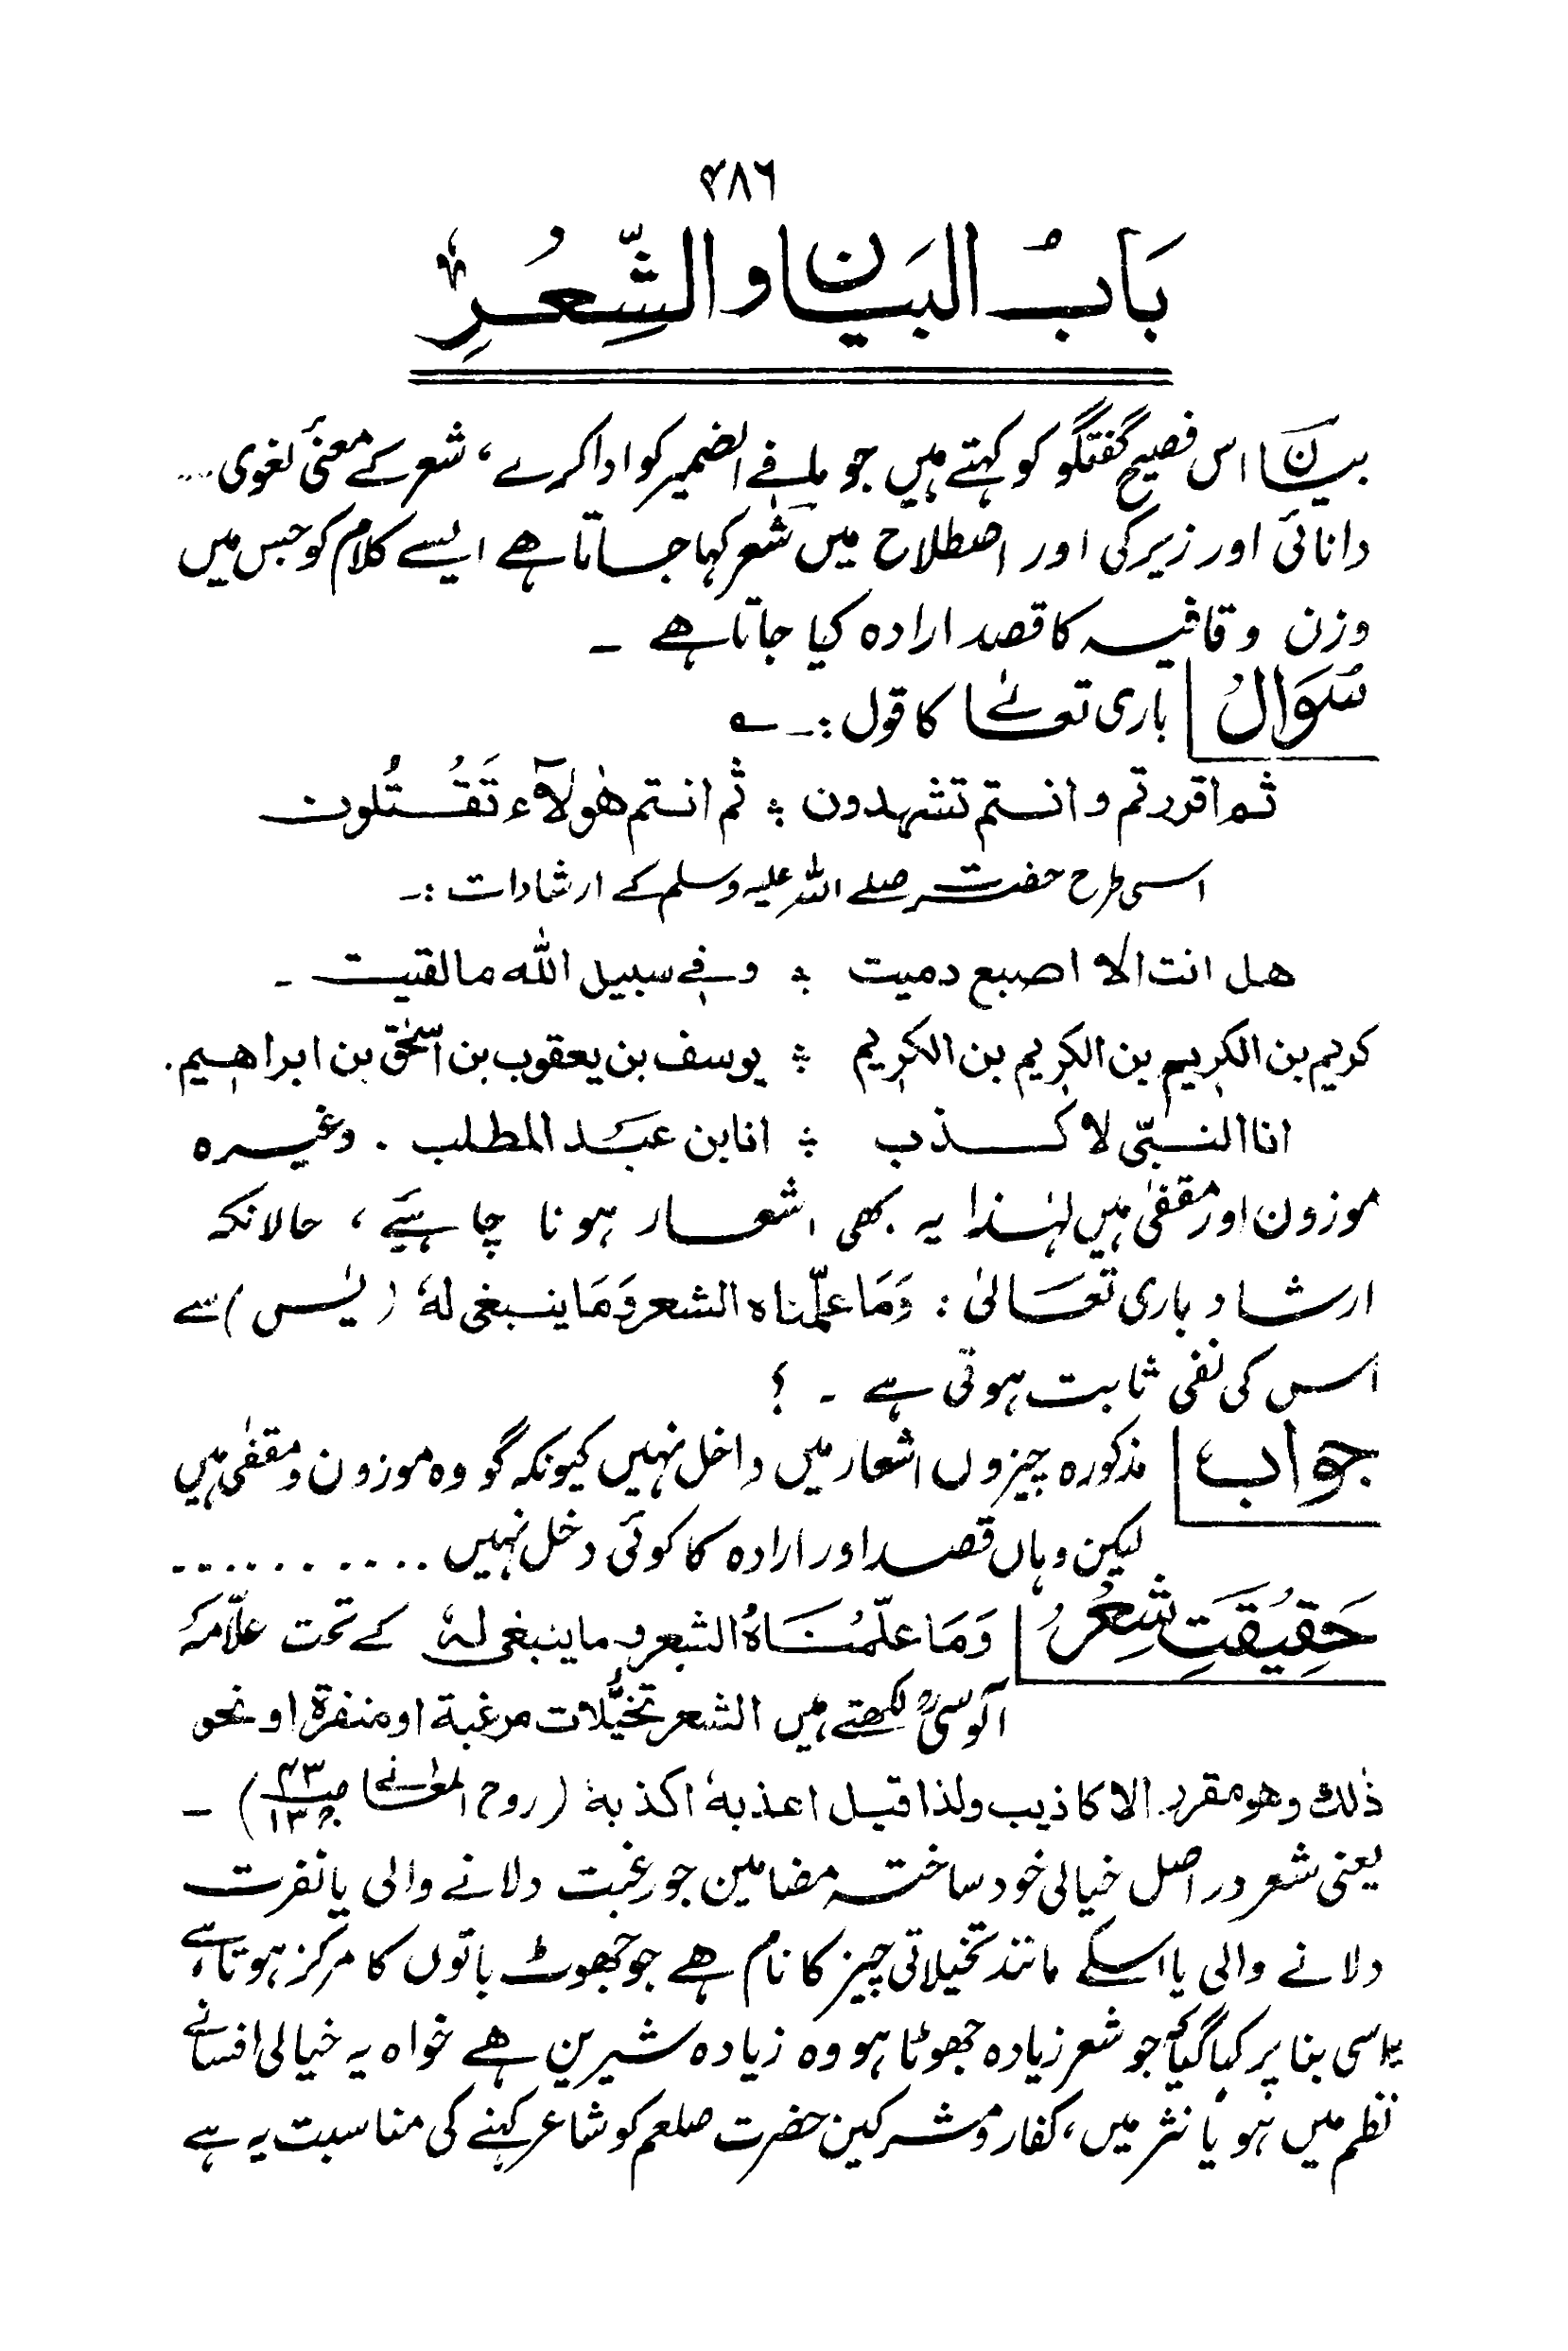 ۴۸۶
بَابُ البَيَانِ وَالشِّعُرِ
بیان اس فصیح گفتگو کو کہتے ہیں جو مافے الضمیر کو ادا کرے، شعر کے معنیٔ لغوی ...
دانائی اور زیرکی اور اصطلاح میں شعر کہا جاتا ہے ایسے کلام کو جس میں
وزن وقافیہ کا قصد ارادہ کیا جاتا ہے ۔
سُوَالُ باری تعالےٰ کا قول :۔ ؎
ثم اقررتم وانتم تشہدون ؞ ثم انتم ھٰولآء تَقُتُلون
اسی طرح حضرت صلے اللہ علیہ وسلم کے ارشادات :۔
ھل انت الا اصبع دمیت ؞ وفے سبیل اللہ مالقیت ۔
کریم بن الکریم بن الکریم بن الکریم ؞ یوسف بن یعقوب بن اسحٰق بن ابراھیم .
انا النبیّ لا کذب ؞ انا بن عبد المطلب . وغیرہ
موزون اور مقفیٰ ہیں لہٰذا یہ بھی اشعار ہونا چاہیئے ، حالانکہ
ارشاد باری تعَالیٰ : وَمَا علّمناہ الشعر وَمَا ینبغی لہٗ (یٰس) سے
اس کی نفی ثابت ہوتی ہے ۔ ؟
جواب مذکورہ چیزوں اشعار میں داخل نہیں کیونکہ گو وہ موزون ومقفٰی ہیں
لیکن وہاں قصد اور ارادہ کا کوئی دخل نہیں ...........
حَقِیُقَتِ شِعُرُ وَمَا علّمُنَاہُ الشعر وما ینبغی لہٗ کے تحت علّامہ
آلوسیؒ لکھتے ہیں الشعر تخیُّلات مرغبة او منفرة او نحو
ذٰلك وهو مقرر الاکاذیب ولذا قیل اعذبہٗ اکذبہٗ (روح المعانے ص۴۳ ج۱۳) ۔
یعنی شعر در اصل خیالی خود ساختہ مضامین جو رغبت دلانے والی یا نفرت
دلانے والی یا اسکے مانند تخیلاتی چیز کا نام ہے جو جھوٹ باتوں کا مرکز ہوتا ہے
اسی بنا پر کہا گیا کہ جو شعر زیادہ جھوٹا ہو وہ زیادہ شیرین ہے خواہ یہ خیالی افسانے
نظم میں ہو یا نثر میں، کفار ومشرکین حضرت صلعم کو شاعر کہنے کی مناسبت یہ ہے